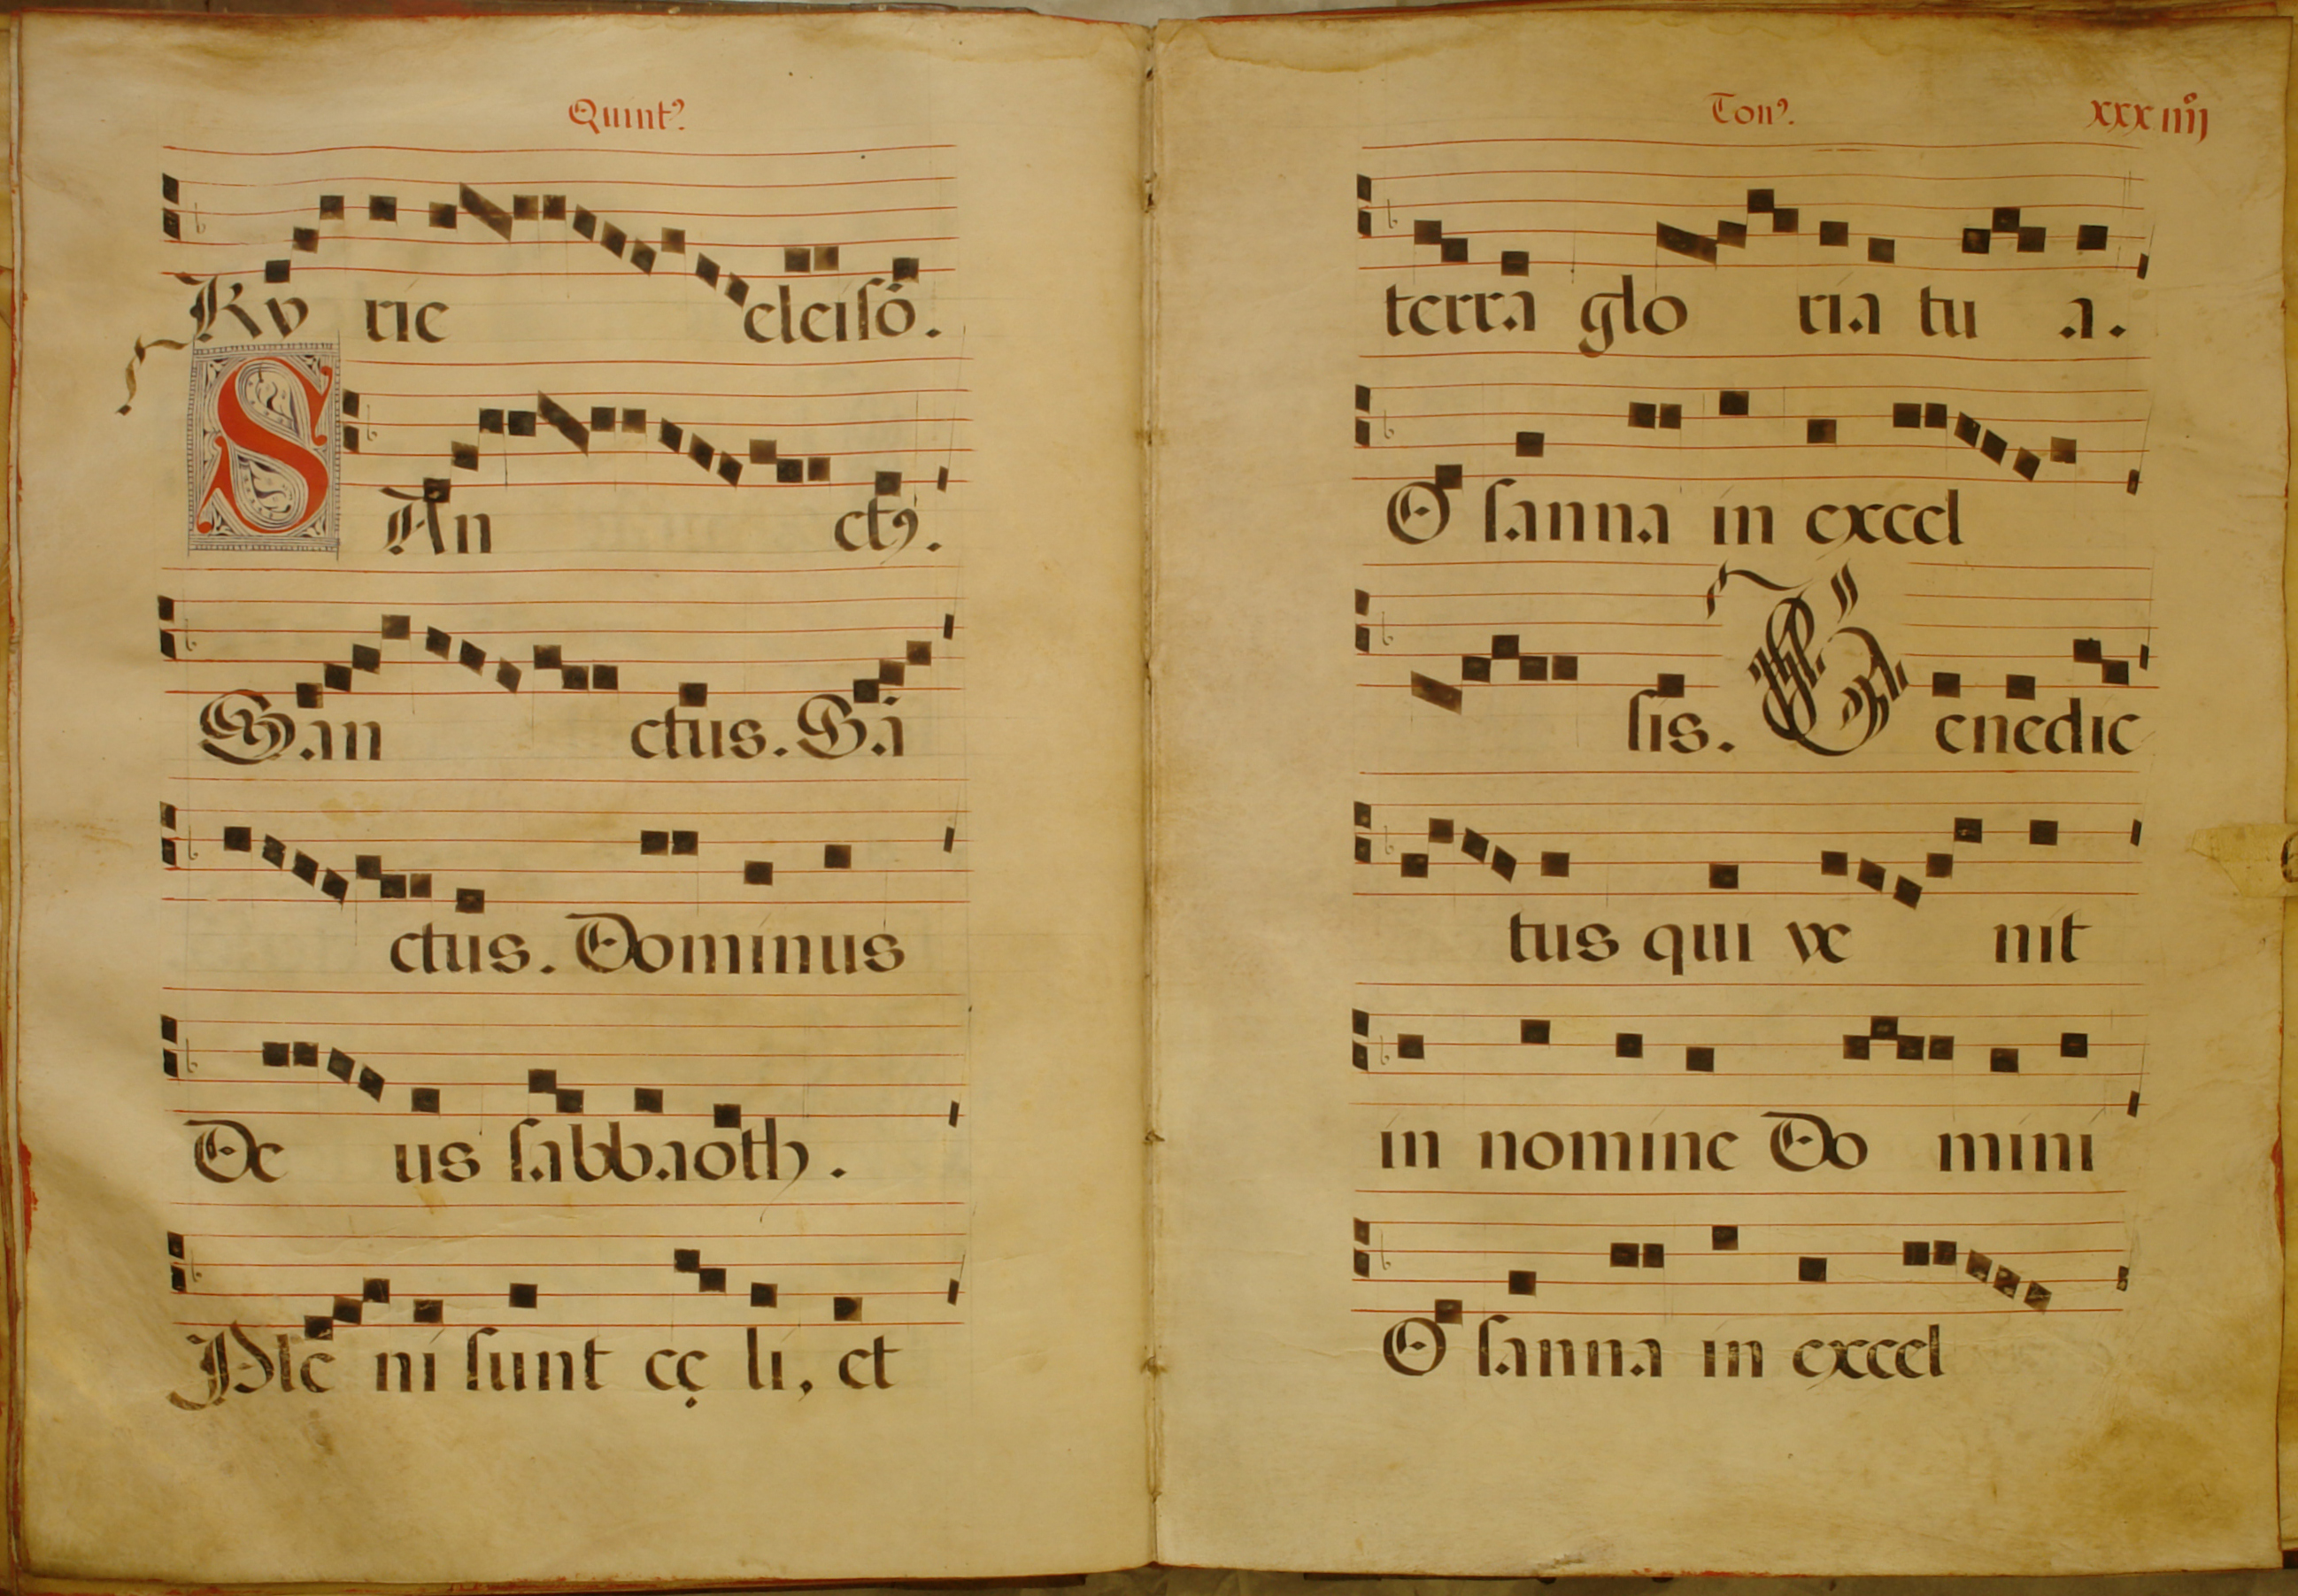 Quintꝰ.
Ky rie eleisō.
SAn ctꝰ.
San ctus. Sā
ctus. Dominus
De us sabbaoth.
Ple ni sunt cę li, et
Tonꝰ. xxxiiij
terra glo ria tu a.
O sanna in excel
sis. Benedic
tus qui ve nit
in nomine Do mini
O sanna in excel